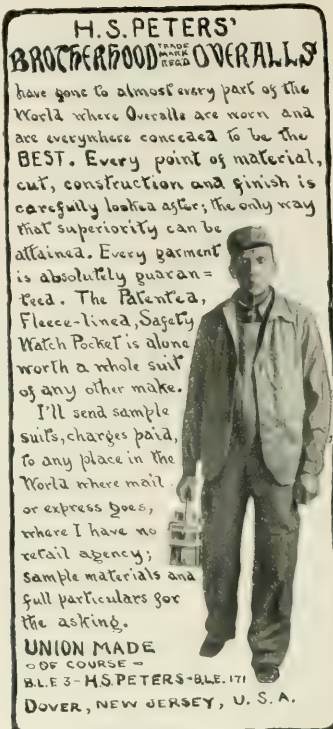 H.S. PETERS'
BROTHERHOOD TRADE MARK REG'D OVERALLS
have gone to almost every part of the
World where Overalls are worn and
are everywhere conceded to be the
BEST. Every point of material,
cut, construction and finish is
carefully looked after; the only way
that superiority can be
attained. Every garment
is absolutely guaran=
teed. The Patented,
Fleece-lined, Safety
Watch Pocket is alone
worth a whole suit
of any other make.
I'll send sample
suits, charges paid,
to any place in the
World where mail
or express goes,
where I have no
retail agency;
sample materials and
full particulars for
the asking.
UNION MADE
OF COURSE
B.L.E 3 - H.S. PETERS - B.L.E. 171
DOVER, NEW JERSEY, U.S.A.